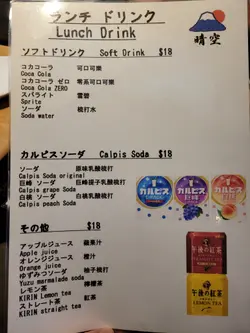 ランチ ドリンク
Lunch Drink
晴空
ソフトドリンク Soft Drink $18
コカコーラ 可口可樂
Coca Cola
コカコーラ ゼロ 零系可口可樂
Coca Cola ZERO
スパライト 雪碧
Sprite
ソーダ 梳打水
Soda water
カルピスソーダ Calpis Soda $18
ソーダ 原味乳酸梳打
Calpis Soda original
巨峰 ソーダ 巨峰提子乳酸梳打
Calpis grape Soda
白桃 ソーダ 白桃乳酸梳打
Calpis peach Soda
カルピス
カルピス 巨峰
カルピス
その他 $18
アップルジュース 蘋果汁
Apple juice
オレンジジュース 橙汁
Orange juice
ゆずみつソーダ 柚子梳打
Yuzu marmalade soda
レモン茶 檸檬茶
KIRIN Lemon tea
ストレート茶 紅茶
KIRIN straight tea
午後の紅茶
午後の紅茶
LEMON TEA